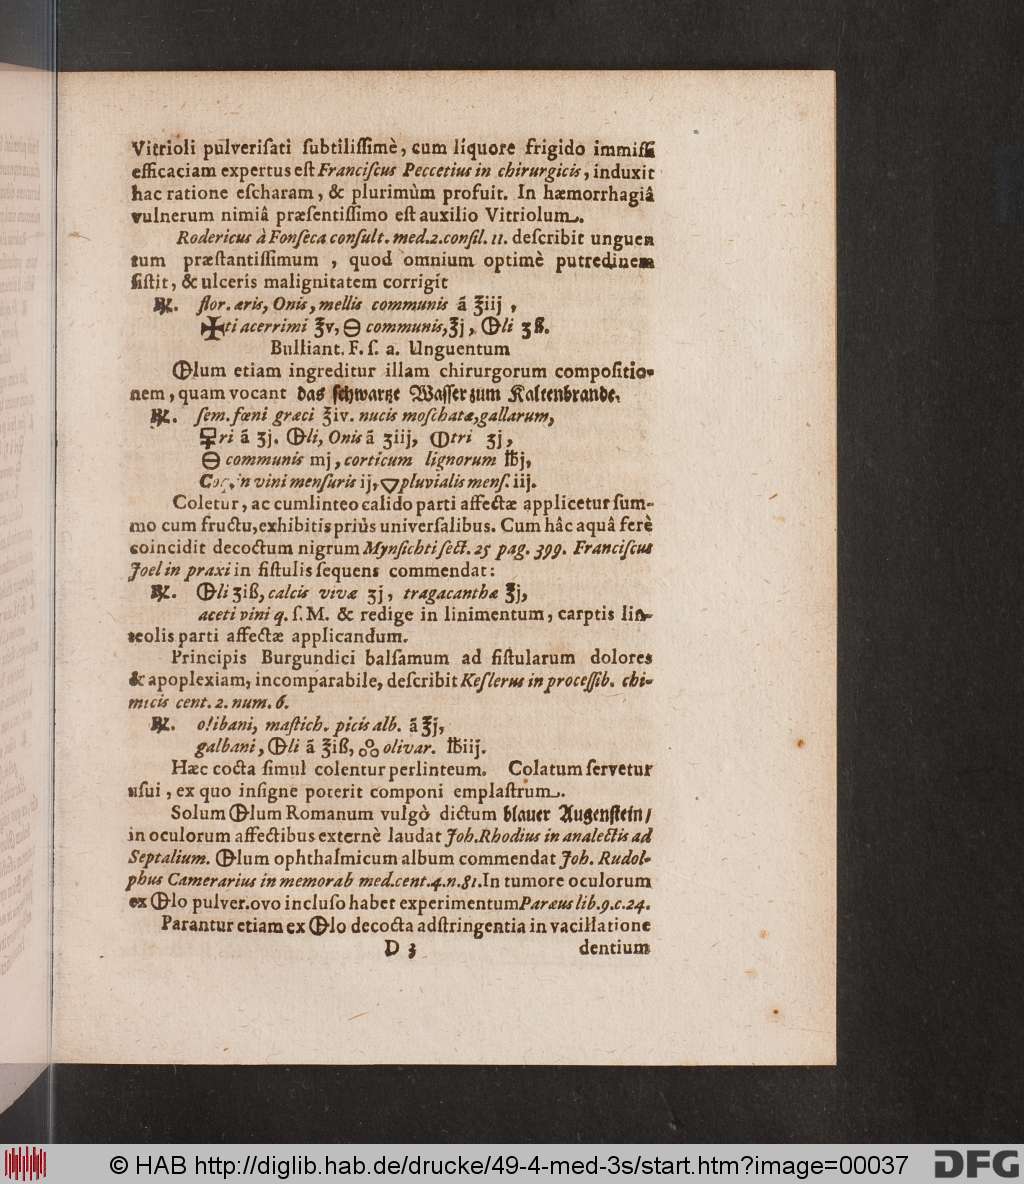 Vitrioli pulveriſati ſubtiliſſimè, cum liquore frigido immiſſi
efficaciam expertus eſt Franciſcus Peccetius in chirurgicis, induxit
hac ratione eſcharam, & plurimùm profuit. In hæmorrhagiâ
vulnerum nimiâ præſentiſſimo eſt auxilio Vitriolum.
Rodericus à Fonſeca conſult. med. 2. conſil. 11. deſcribit unguen
tum præſtantiſſimum, quod omnium optimè putredinem
ſiſtit, & ulceris malignitatem corrigit
℞. flor. æris, Onis, mellis communis ā ℥iij,
🜊ti acerrimi ℥v, 🜔 communis, ℥j, 🜖li ʒß.
Bulliant. F. ſ. a. Unguentum
🜖lum etiam ingreditur illam chirurgorum compoſitio-
nem, quam vocant das ſchwartze Waſſer zum Kaltenbrande.
℞. ſem. fœni græci ℥iv. nucis moſchatæ, gallarum,
🜠ri ā ʒj. 🜖li, Onis ā ʒiij, 🜕tri ʒj,
🜔 communis mj, corticum lignorum ℔j,
in vini menſuris ij, 🜄 pluvialis menſ. iij.
Coletur, ac cum linteo calido parti affectæ applicetur ſum-
mo cum fructu, exhibitis priùs univerſalibus. Cum hâc aquâ ferè
coincidit decoctum nigrum Mynſichti ſect. 25 pag. 399. Franciſcus
Joel in praxi in fiſtulis ſequens commendat:
℞. 🜖li ʒiß, calcis vivæ ʒj, tragacanthæ ℥j,
aceti vini q. ſ. M. & redige in linimentum, carptis lin-
teolis parti affectæ applicandum.
Principis Burgundici balſamum ad fiſtularum dolores
& apoplexiam, incomparabile, deſcribit Keſlerus in proceſſib. chi-
micis cent. 2. num. 6.
℞. olibani, maſtich. picis alb. ā ℥j,
galbani, 🜖li ā ℥iß, 🝆 olivar. ℔iij.
Hæc cocta ſimul colentur per linteum. Colatum ſervetur
uſui, ex quo inſigne poterit componi emplaſtrum.
Solum 🜖lum Romanum vulgò dictum blauer Augenſtein/
in oculorum affectibus externè laudat Joh. Rhodius in analectis ad
Septalium. 🜖lum ophthalmicum album commendat Joh. Rudol-
phus Camerarius in memorab med. cent. 4. n. 81. In tumore oculorum
ex 🜖lo pulver. ovo incluſo habet experimentum Paræus lib. 9. c. 24.
Parantur etiam ex 🜖lo decocta adſtringentia in vacillatione
D 3 dentium
© HAB http://diglib.hab.de/drucke/49-4-med-3s/start.htm?image=00037 DFG